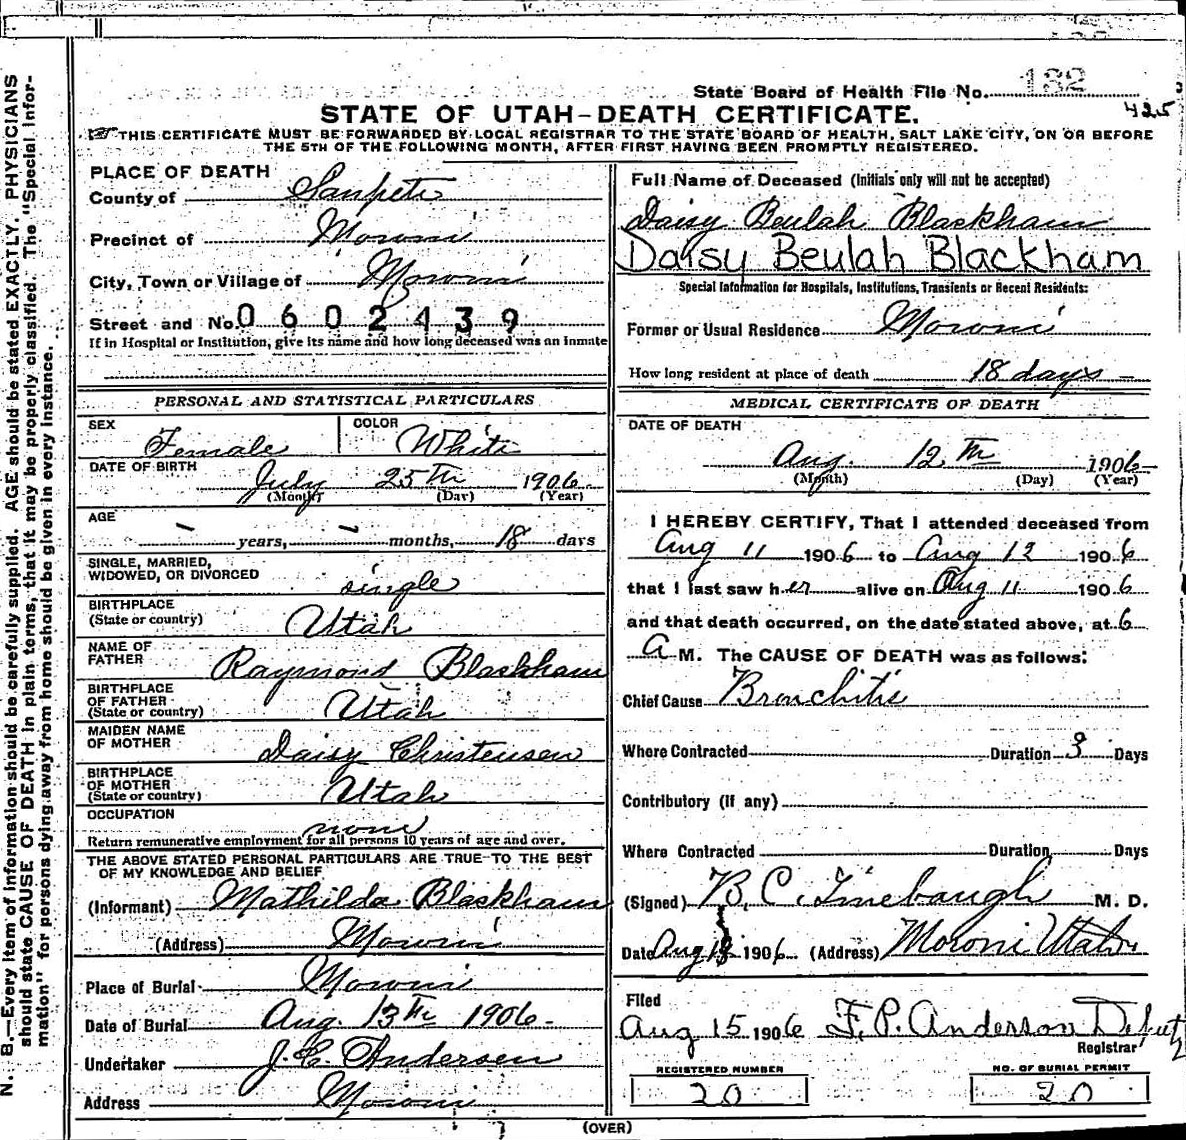 State Board of Health File No. 132
425
STATE OF UTAH–DEATH CERTIFICATE.
THIS CERTIFICATE MUST BE FORWARDED BY LOCAL REGISTRAR TO THE STATE BOARD OF HEALTH, SALT LAKE CITY, ON OR BEFORE
THE 5TH OF THE FOLLOWING MONTH, AFTER FIRST HAVING BEEN PROMPTLY REGISTERED.
PLACE OF DEATH
County of Sanpete
Precinct of Moroni
City, Town or Village of Moroni
Street and No. 0602439
If in Hospital or Institution, give its name and how long deceased was an inmate
PERSONAL AND STATISTICAL PARTICULARS
SEX Female COLOR White
DATE OF BIRTH July 25th 1906
(Month) (Day) (Year)
AGE – years, – months, 18 days
SINGLE, MARRIED,
WIDOWED, OR DIVORCED single
BIRTHPLACE
(State or country) Utah
NAME OF
FATHER Raymond Blackham
BIRTHPLACE
OF FATHER
(State or country) Utah
MAIDEN NAME
OF MOTHER Daisy Christensen
BIRTHPLACE
OF MOTHER
(State or country) Utah
OCCUPATION none
Return remunerative employment for all persons 10 years of age and over.
THE ABOVE STATED PERSONAL PARTICULARS ARE TRUE TO THE BEST
OF MY KNOWLEDGE AND BELIEF
(Informant) Mathilda Blackham
(Address) Moroni
Place of Burial Moroni
Date of Burial Aug. 13th 1906
Undertaker J. C. Andersen
Address Moroni
Full Name of Deceased (Initials only will not be accepted)
Daisy Beulah Blackham
Daisy Beulah Blackham
Special Information for Hospitals, Institutions, Transients or Recent Residents:
Former or Usual Residence Moroni
How long resident at place of death 18 days
MEDICAL CERTIFICATE OF DEATH
DATE OF DEATH
Aug. 12th 1906
(Month) (Day) (Year)
I HEREBY CERTIFY, That I attended deceased from
Aug 11 1906 to Aug 12 1906
that I last saw her alive on Aug 11 1906
and that death occurred, on the date stated above, at 6
A M. The CAUSE OF DEATH was as follows:
Chief Cause Bronchitis
Where Contracted Duration 3 Days
Contributory (if any)
Where Contracted Duration Days
(Signed) B. C. Linebaugh M. D.
Date Aug 1906 (Address) Moroni Utah
Filed
Aug 15 1906 F. P. Anderson Deputy
Registrar
REGISTERED NUMBER
20
NO. OF BURIAL PERMIT
20
(OVER)
N. B.—Every item of information should be carefully supplied. AGE should be stated EXACTLY. PHYSICIANS
should state CAUSE OF DEATH in plain terms, that it may be properly classified. The "Special Infor-
mation" for persons dying away from home should be given in every instance.